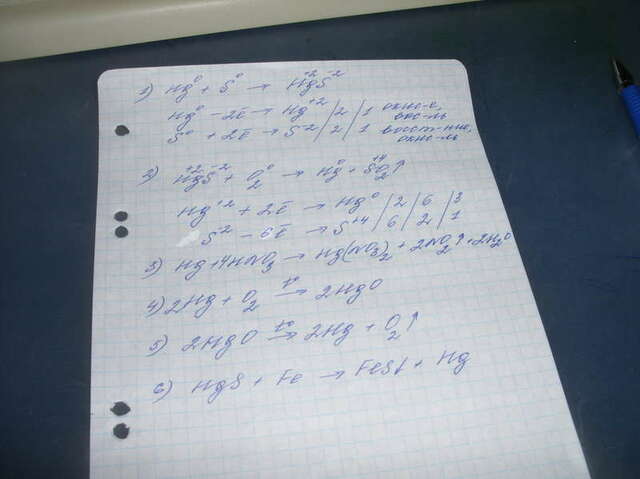 1) Hg⁰ + S⁰ → Hg⁺²S⁻²
Hg⁰ - 2ē → Hg⁺² / 2 / 1 окис-е, вос-ль
S⁰ + 2ē → S⁻² / 2 / 1 восст-ние, окис-ль
2) Hg⁺²S⁻² + O₂⁰ → Hg⁰ + S⁺⁴O₂↑
Hg⁺² + 2ē → Hg⁰ / 2 / 6 / 3
S⁻² - 6ē → S⁺⁴ / 6 / 2 / 1
3) Hg + 4HNO₃ → Hg(NO₃)₂ + 2NO₂↑ + 2H₂O
4) 2Hg + O₂ →t° 2HgO
5) 2HgO →t° 2Hg + O₂↑
6) HgS + Fe → FeS↓ + Hg